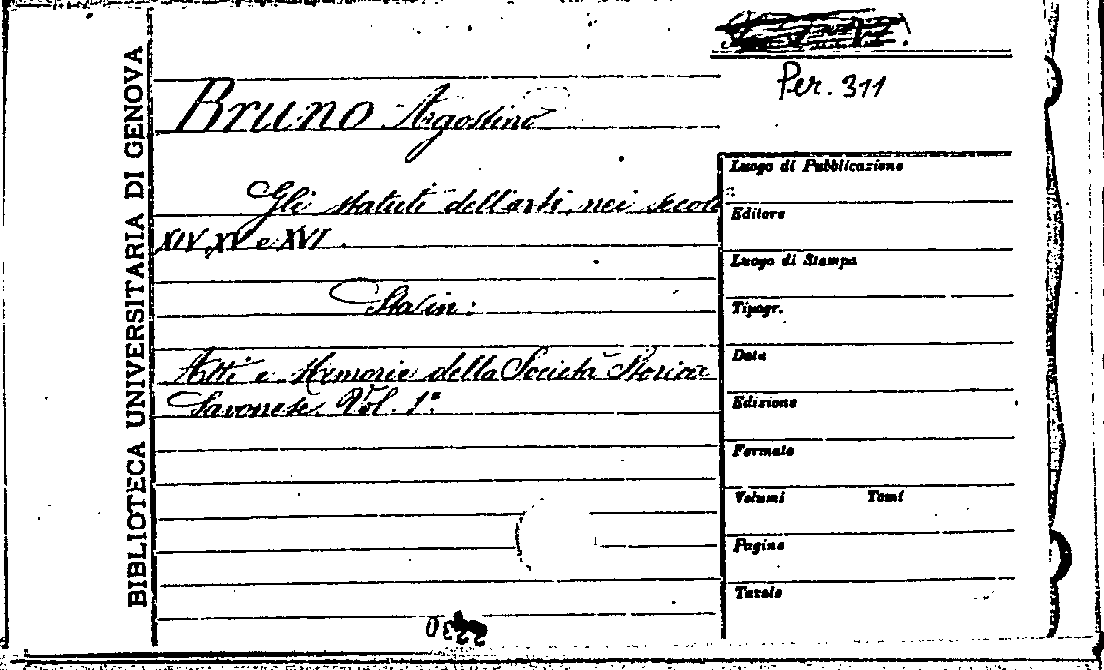 Per. 311
BIBLIOTECA UNIVERSITARIA DI GENOVA
Bruno Agostino
Gli statuti dell'arti, nei secoli
XIV, XV e XVI.
Sta in:
Atti e Memorie della Società Storica
Savonese, Vol. 1º
Luogo di Pubblicazione
Editore
Luogo di Stampa
Tipogr.
Data
Edizione
Formato
Volumi Tomi
Pagine
Tavole